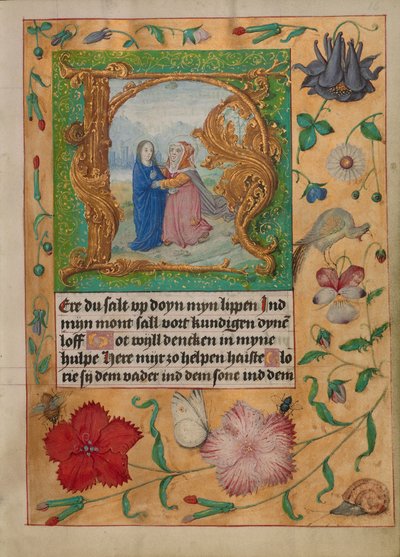 Ere du salt vp doyn myn lippen Ind
mijn mont sall vort kundigen dynē
loff Got wyll dencken in myne
hulpe Here myr zo helpen haiste Glo
rie sij dem vader ind dem sone ind dem